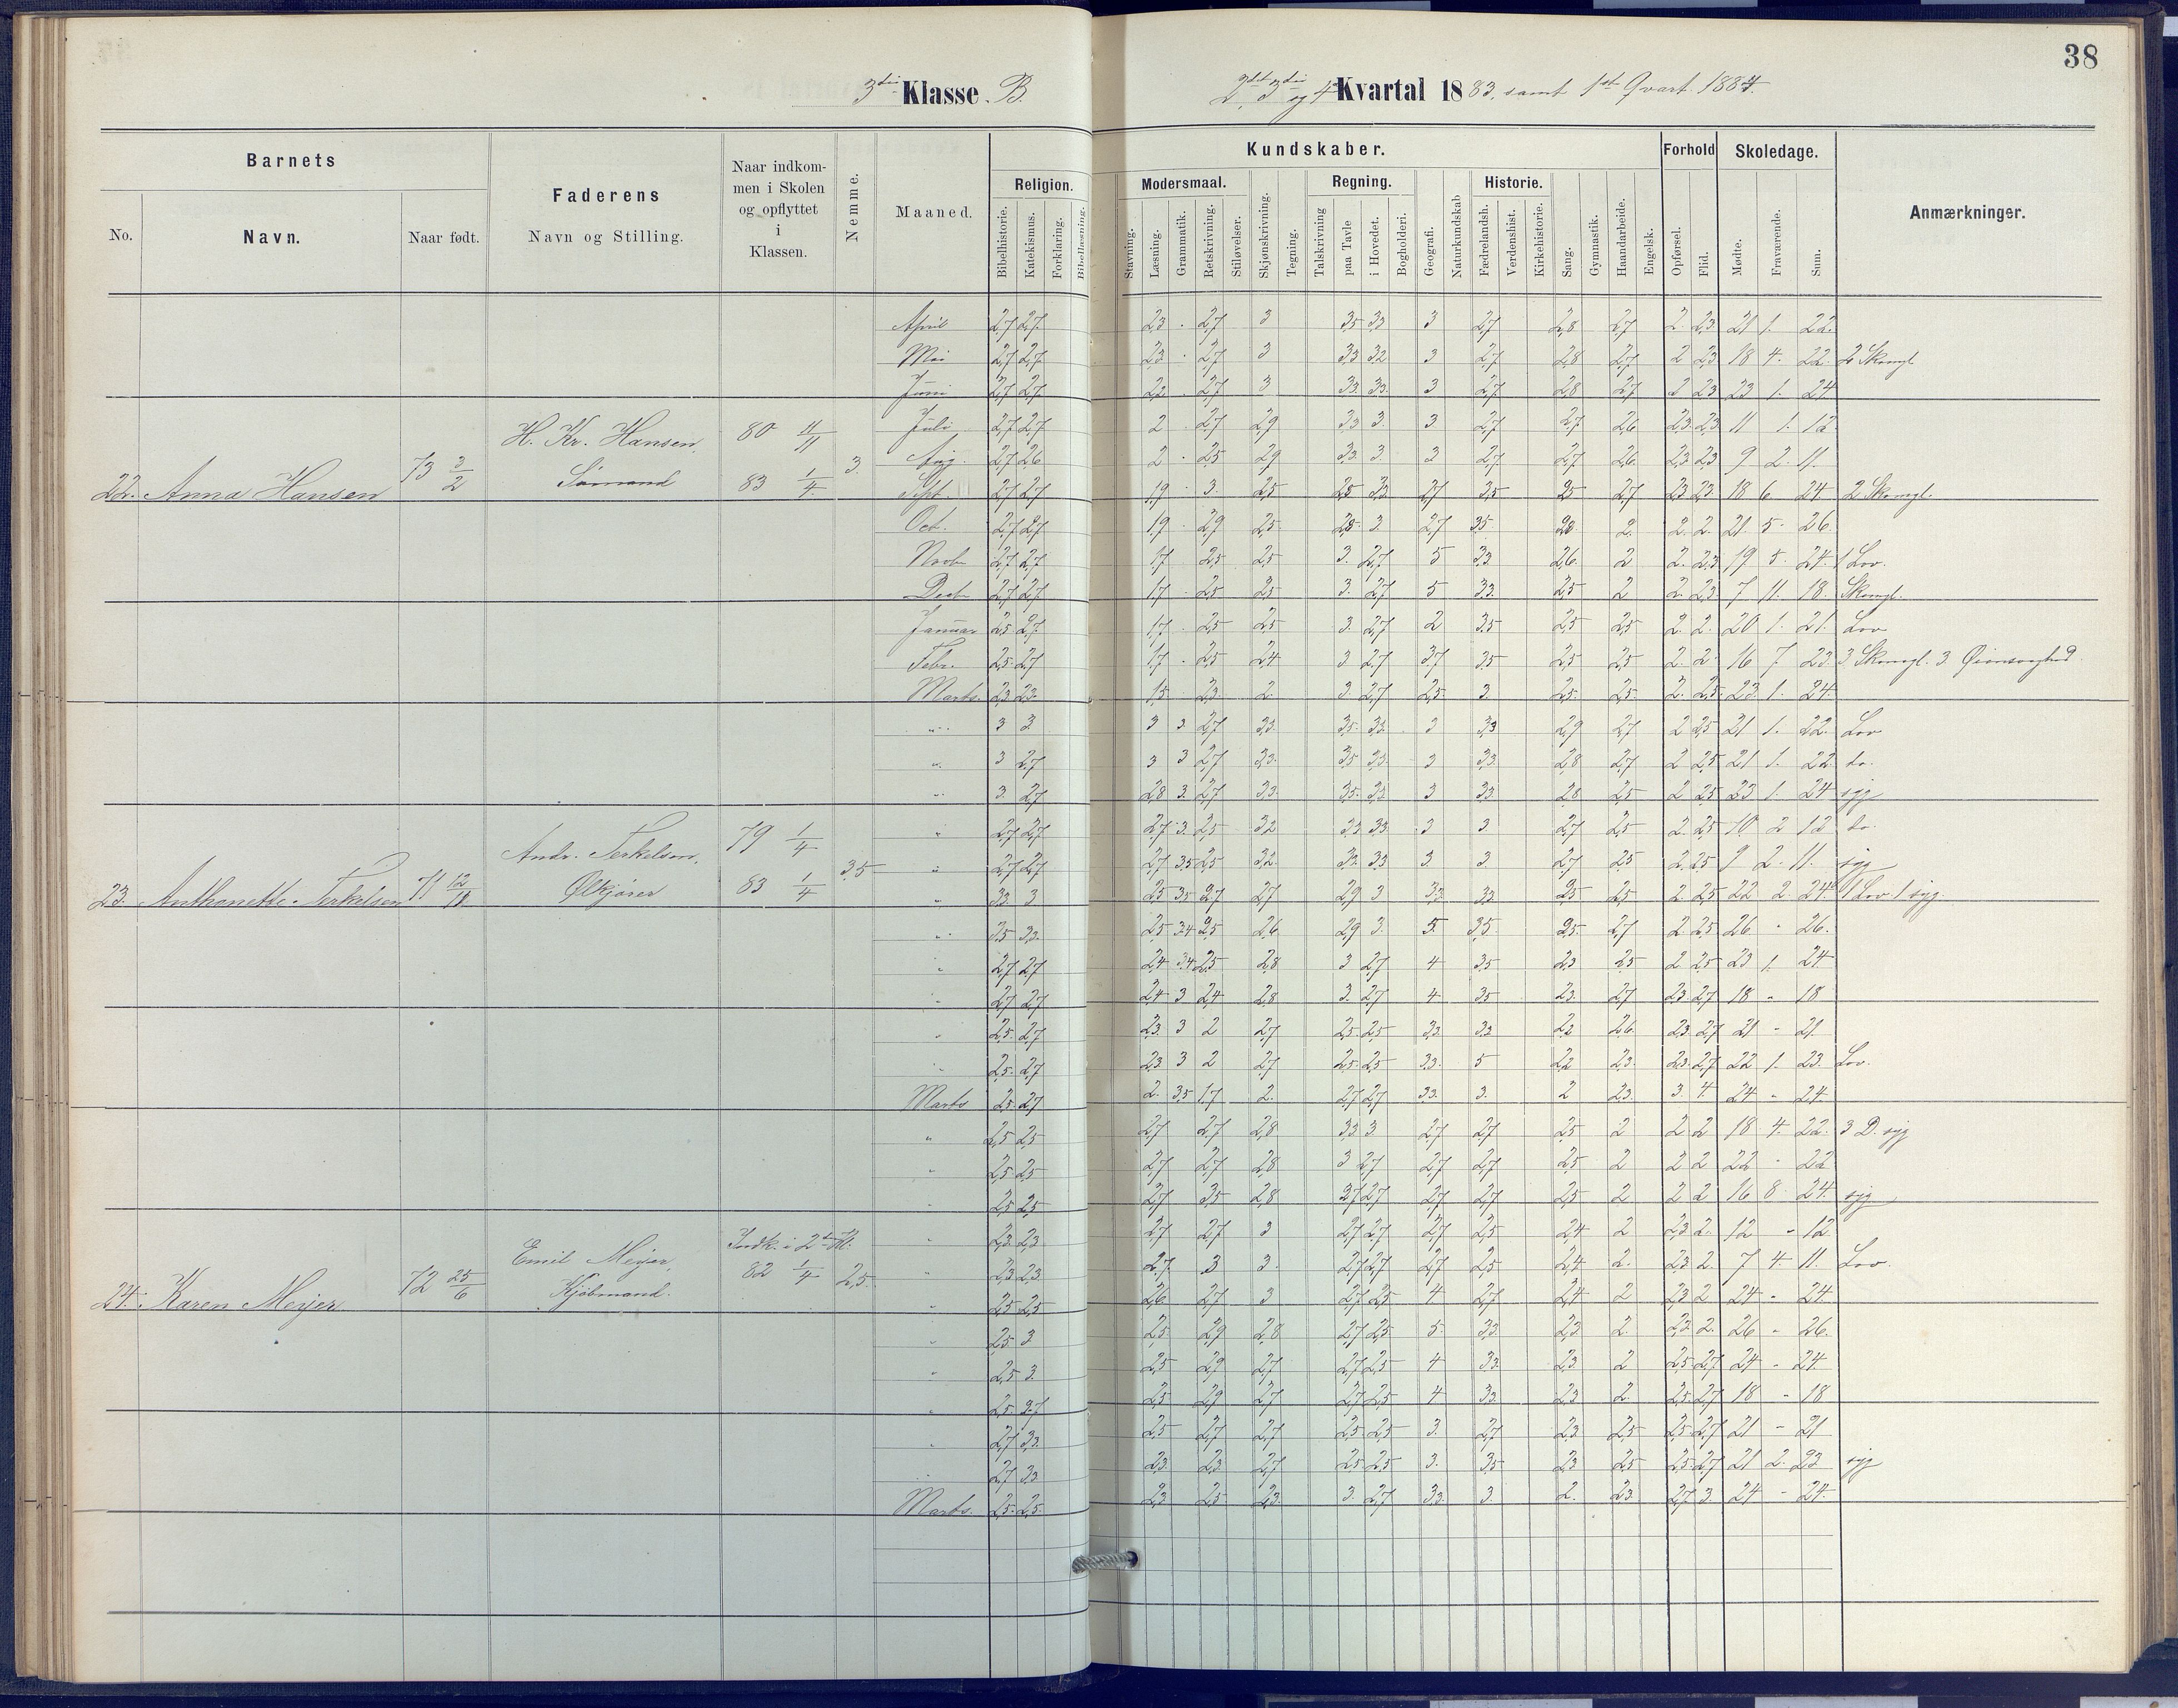 38
3die Klasse B.
2det, 3die og 4de Kvartal 1883, samt 1ste Qvart. 1884.
Barnets
No.
Navn.
Naar født.
Faderens
Navn og Stilling.
Naar indkom-
men i Skolen
og opflyttet
i
Klassen.
Nemme.
Maaned.
Kundskaber.
Religion.
Bibelhistorie.
Katekismus.
Forklaring.
Bibellæsning.
Modersmaal.
Stavning.
Læsning.
Grammatik.
Retskrivning.
Stiløvelser.
Skjønskrivning.
Tegning.
Regning.
Talskrivning
paa Tavle
i Hovedet.
Bogholderi.
Geografi.
Naturkundskab
Historie.
Fædrelandsh.
Verdenshist.
Kirkehistorie.
Sang.
Gymnastik.
Haandarbeide.
Engelsk.
Forhold
Opførsel.
Flid.
Skoledage.
Mødte.
Fraværende.
Sum.
Anmærkninger.
22. Anna Hansen 73 3/2 H. Kr. Hansen, Sømand 80 11/11 83 1/4 3.
April 2,7 2,7 2,3 2,7 3 3,5 3,3 3 2,7 2,8 2,7 2 2,3 21 1 22
Mai 2,7 2,7 2,3 2,7 3 3,3 3,2 3 2,7 2,8 2,7 2 2,3 18 4 22 2 Skomgl.
Juni 2,7 2,7 2,2 2,7 3 3,3 3,3 3 2,7 2,8 2,7 2 2,3 23 1 24
Juli 2,7 2,7 2 2,7 2,9 3,3 3 3 2,7 2,7 2,6 2,3 2,3 11 1 12
Aug. 2,7 2,6 2 2,5 2,9 3,3 3 3 2,7 2,7 2,6 2,3 2,3 9 2 11
Sept. 2,7 2,7 1,9 3 2,5 2,8 3,3 2,7 3,5 2,5 2,7 2,3 2,3 18 6 24 2 Skomgl.
Oct. 2,7 2,7 1,9 2,9 2,5 2,8 3 2,7 3,5 2 2 2 21 5 26
Novb 2,7 2,7 1,7 2,5 2,5 3 2,7 5 3,3 2,6 2 2 2,3 19 5 24 1 Lov.
Decb 2,7 2,7 1,7 2,5 2,5 3 2,7 5 3,3 2,5 2 2 2,3 7 11 18 Skomgl.
Januar 2,5 2,7 1,7 2,5 2,5 3 2,7 2 3,5 2,5 2,5 2 2 20 1 21 Lov
Febr. 2,5 2,7 1,7 2,5 2,4 3 2,7 3,7 3,5 2,5 2,5 2 2 16 7 23 3 Skomgl. 3
Marts 2,3 2,3 1,5 2,3 2 3 2,7 2,5 3 2,5 2,5 2 2,5 23 1 24
23. Anthonette Terkelsen 71 Andr. Terkelsen, Ølkjører 79 1/4 83 1/4 3,5
" 3 3 3 3 2,7 3,3 3,5 3,3 3 3,3 2,9 2,7 2 2,5 21 1 22 Lov
" 3 2,7 3 3 2,7 3,3 3,5 3,3 3 3,3 2,8 2,7 2 2,5 21 1 22 do.
" 3 2,7 2,8 3 2,7 3,3 3,5 3,3 3 3,3 2,8 2,5 2 2,5 23 1 24 syg
" 2,7 2,7 2,7 3 2,5 3,2 3,3 3,3 3 3 2,7 2,5 2 2,5 10 2 12 do.
" 2,7 2,7 2,7 3,5 2,5 3,2 3,3 3,3 3 3 2,7 2,5 2 2,5 9 2 11 syg
" 3,3 3 2,5 3,5 2,7 2,7 2,9 3 3,3 3,3 2,5 2,5 2 2,5 22 2 24 1 Lov 1 syg
" 3,5 3,3 2,5 3,4 2,5 2,6 2,9 3 5 3,5 2,5 2,7 2 2,5 26 - 26
" 2,7 2,7 2,4 3,4 2,5 2,8 3 2,7 4 3,5 2,3 2,5 2 2,5 23 1 24
" 2,7 2,7 2,4 3 2,4 2,8 3 2,7 4 3,5 2,3 2,7 2,3 2,7 18 - 18
" 2,5 2,7 2,3 3 2 2,7 2,5 2,5 3,3 3,3 2,2 2,6 2,3 2,7 21 - 21
" 2,5 2,7 2,3 3 2 2,7 2,5 2,5 3,3 5 2,2 2,3 2,3 2,7 22 1 23 Lov.
Marts 2,5 2,7 2 3,5 1,7 2 2,7 2,7 3,3 3 2 2,3 3 4 24 - 24
24. Karen Meyer 72 25/6 Emil Meyer, Kjøbmand. Indk. i 2den Kl. 82 1/4 2,5
" 2,5 2,5 2,7 2,7 2,8 3,3 3 2,7 2,7 2,5 2 2 2 18 4 22 3 D. syg
" 2,5 2,5 2,7 2,7 2,8 3 2,7 2,7 2,7 2,5 2 2 2 22 - 22
" 2,5 2,5 2,7 3,5 2,8 2,7 2,7 2,7 2,7 2,5 2 2 2 16 8 24 syg
" 2,3 2,3 2,7 2,7 3 2,7 2,7 2,7 2,5 2,4 2 2,3 2 12 - 12
" 2,3 2,3 2,7 3 3 2,7 2,7 2,7 2,5 2,4 2 2,3 2 7 4 11 Lov.
" 2,5 2,5 2,6 2,7 3 2,7 2,5 4 2,7 2,4 2 2,3 2 24 - 24
" 2,5 3 2,5 2,9 2,8 2,7 2,5 5 3,3 2,3 2 2,3 2 26 - 26
" 2,5 3 2,5 2,9 2,7 2,7 2,5 4 3,3 2,3 2 2,5 2,7 24 - 24
" 2,5 2,7 2,5 2,9 2,7 2,7 2,5 4 3,3 2,3 2 2,5 2,7 18 - 18
" 2,7 3,3 2,5 2,7 2,7 2,5 2,5 3 2,7 2,3 2,5 2,5 2,7 21 - 21
" 2,7 3,3 2,3 2,3 2,7 2,5 2,5 3 3,5 2,3 2,5 2,5 2,7 21 2 23 syg
Marts. 2,5 2,5 2,3 2,5 2,3 3 2,7 3,3 3 2 2,3 2,7 3 24 - 24